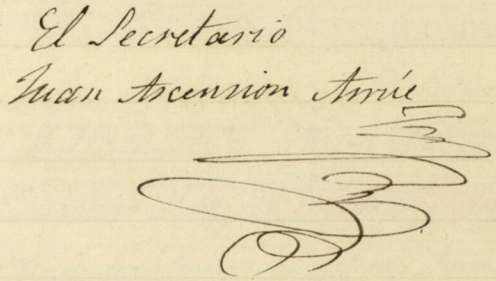 El Secretario
Juan Ascension Arrúe